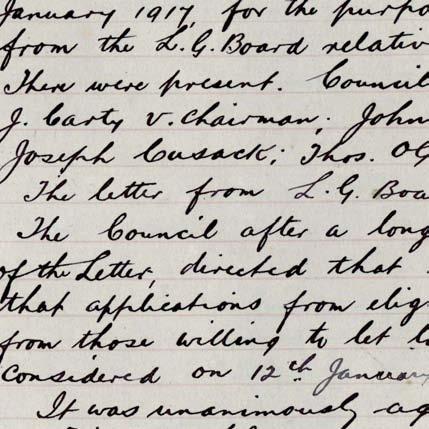 January 1917, for the purpo
from the L.G. Board relativ
There were present. Council
J. Carty V. Chairman; John
Joseph Cusack; Thos. O
The letter from L.G. Boa
The Council after a long
of the Letter, directed that
that applications from elig
from those willing to let l
considered on 12th January
It was unanimously ag